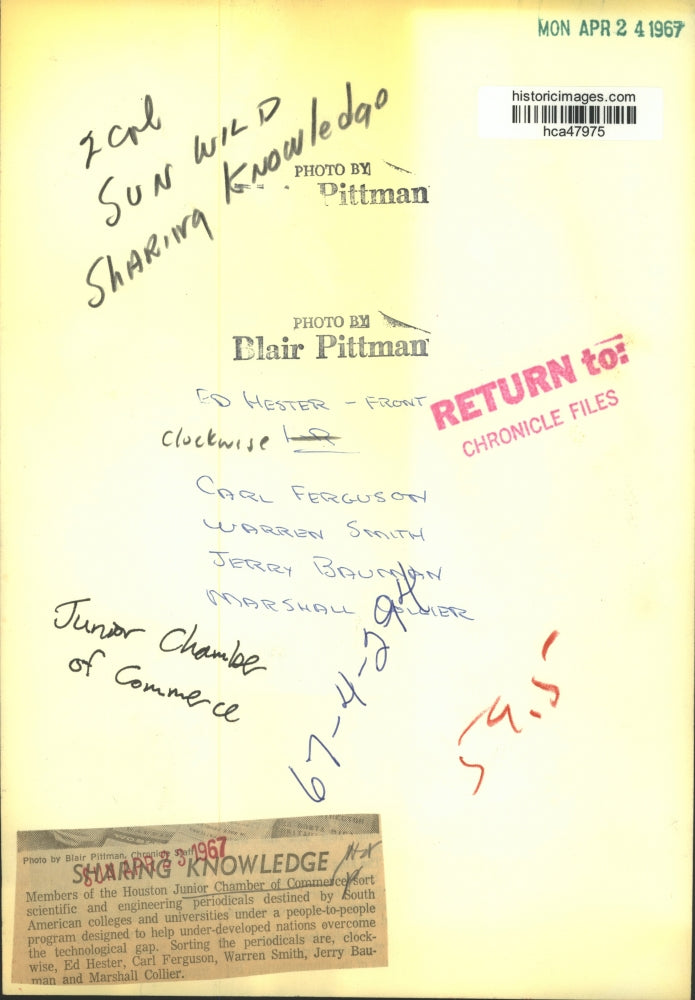 MON APR 24 1967
historicimages.com
hca47975
2 col
SUN WILD
SHARING KNOWLEDGE
PHOTO BY
Pittman
PHOTO BY
Blair Pittman
RETURN to:
CHRONICLE FILES
ED HESTER - FRONT
Clockwise
CARL FERGUSON
WARREN SMITH
JERRY BAUMAN
MARSHALL COLLIER
Junior Chamber
of Commerce
67-4-294
59.5
Photo by Blair Pittman, Chronicle Staff
SUN APR 23 1967
SHARING KNOWLEDGE
Members of the Houston Junior Chamber of Commerce sort
scientific and engineering periodicals destined by South
American colleges and universities under a people-to-people
program designed to help under-developed nations overcome
the technological gap. Sorting the periodicals are, clock-
wise, Ed Hester, Carl Ferguson, Warren Smith, Jerry Bau-
man and Marshall Collier.